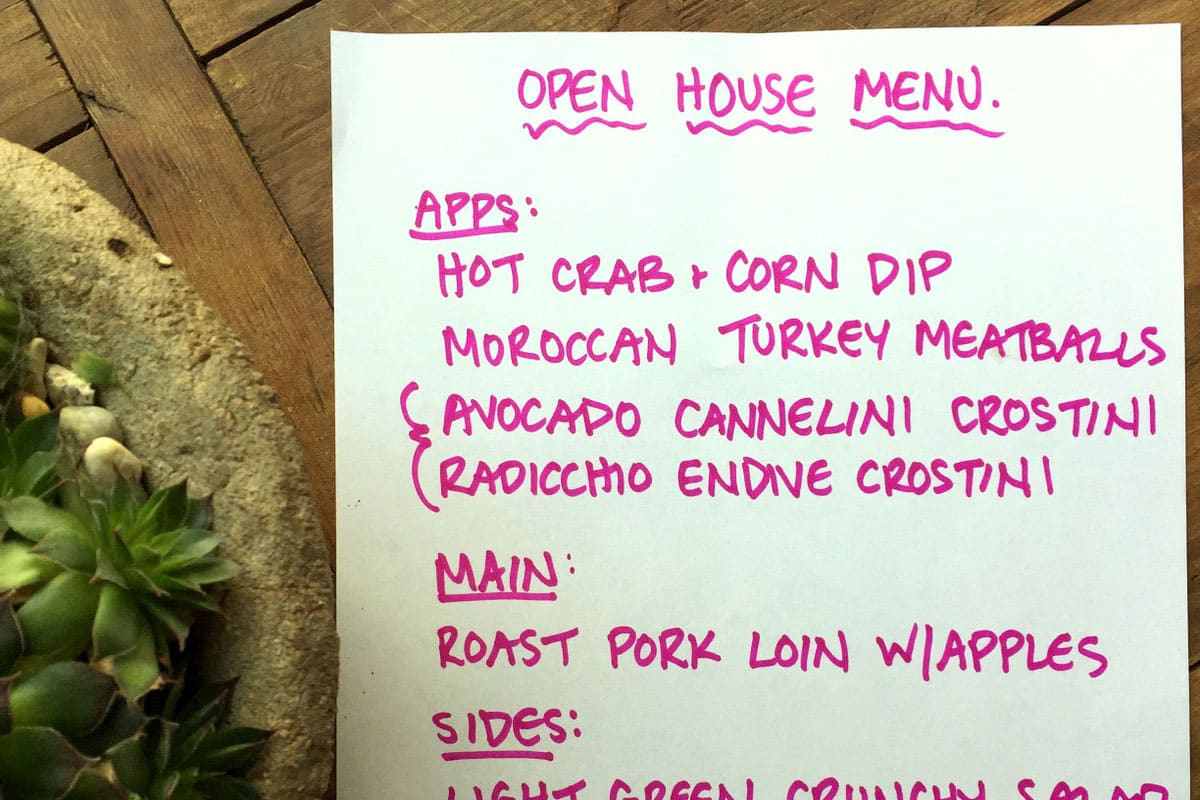 OPEN HOUSE MENU.
APPS:
HOT CRAB + CORN DIP
MOROCCAN TURKEY MEATBALLS
AVOCADO CANNELINI CROSTINI
RADICCHIO ENDIVE CROSTINI
MAIN:
ROAST PORK LOIN W/APPLES
SIDES:
LIGHT GREEN CRUNCHY SALAD